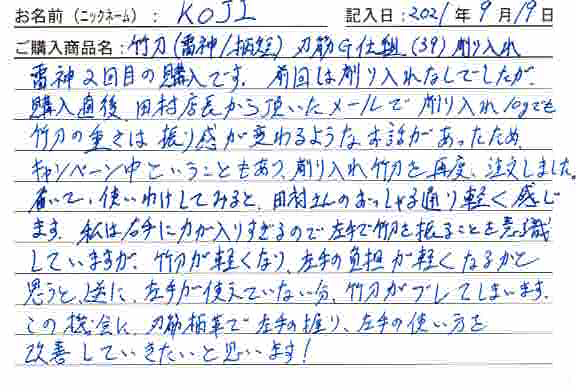 お名前（ニックネーム）： KOJI 記入日：2021年9月19日
ご購入商品名：竹刀（雷神/柄短）刃筋G仕組（39）削り入れ
雷神2回目の購入です。前回は削り入れなしでしたが、
購入直後、田村店長から頂いたメールで削り入れ10gでも
竹刀の重さは振り感が変わるようなお話があったため、
キャンペーン中ということもあり、削り入れ竹刀を再度、注文しました。
届いて、使いわけしてみると、田村さんのおっしゃる通り軽く感じ
ます。私は右手に力が入りすぎるので左手で竹刀を振ることを意識
していますが、竹刀が軽くなり、左手の負担が軽くなるかと
思うと、逆に、左手が使えていない分、竹刀がブレてしまいます。
この機会に、刃筋柄革で左手の握り、左手の使い方を
改善していきたいと思います！